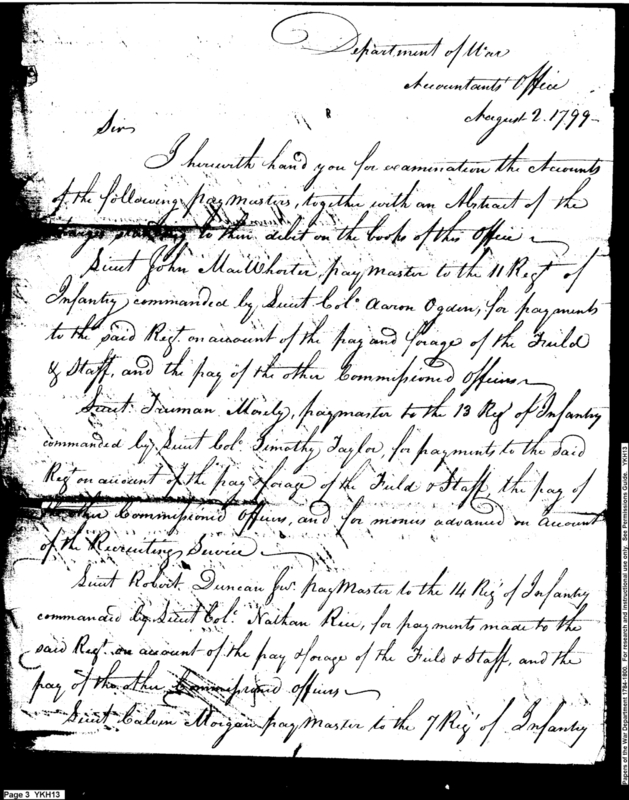 Department of War
Accountants' Office
August 2. 1799-
Sir
I herewith hand you for examination the Accounts
of the following paymasters, together with an Abstract of the
charges standing to their debit on the books of this Office
Lieut John MacWhorter, paymaster to the 11 Regt of
Infantry commanded by Lieut Colo Aaron Ogden, for payments
to the said Regt. on account of the pay and forage of the Feild
& Staff, and the pay of the other Commissioned Officers
Lieut. Truman Mosely, paymaster to the 13 Regt of Infantry
commanded by Lieut Colo Timothy Taylor, for payments to the said
Regt on account of the pay & forage of the Feild & Staff, the pay of
other Commissioned Officers, and for monies advanced on account
of the Recruiting Service
Lieut Robert Duncan Jnr. pay Master to the 14 Regt of Infantry
commanded by Lieut Col. Nathan Rice, for payments made to the
said Regt. on account of the pay & forage of the Feild & Staff, and the
pay of the other Commissioned officers
Lieut Calvin Morgan pay Master to the 7 Regt of Infantry
Page 3 YKH13
Papers of the War Department 1784-1800. For research and instructional use only. See Permissions Guide. YKH13